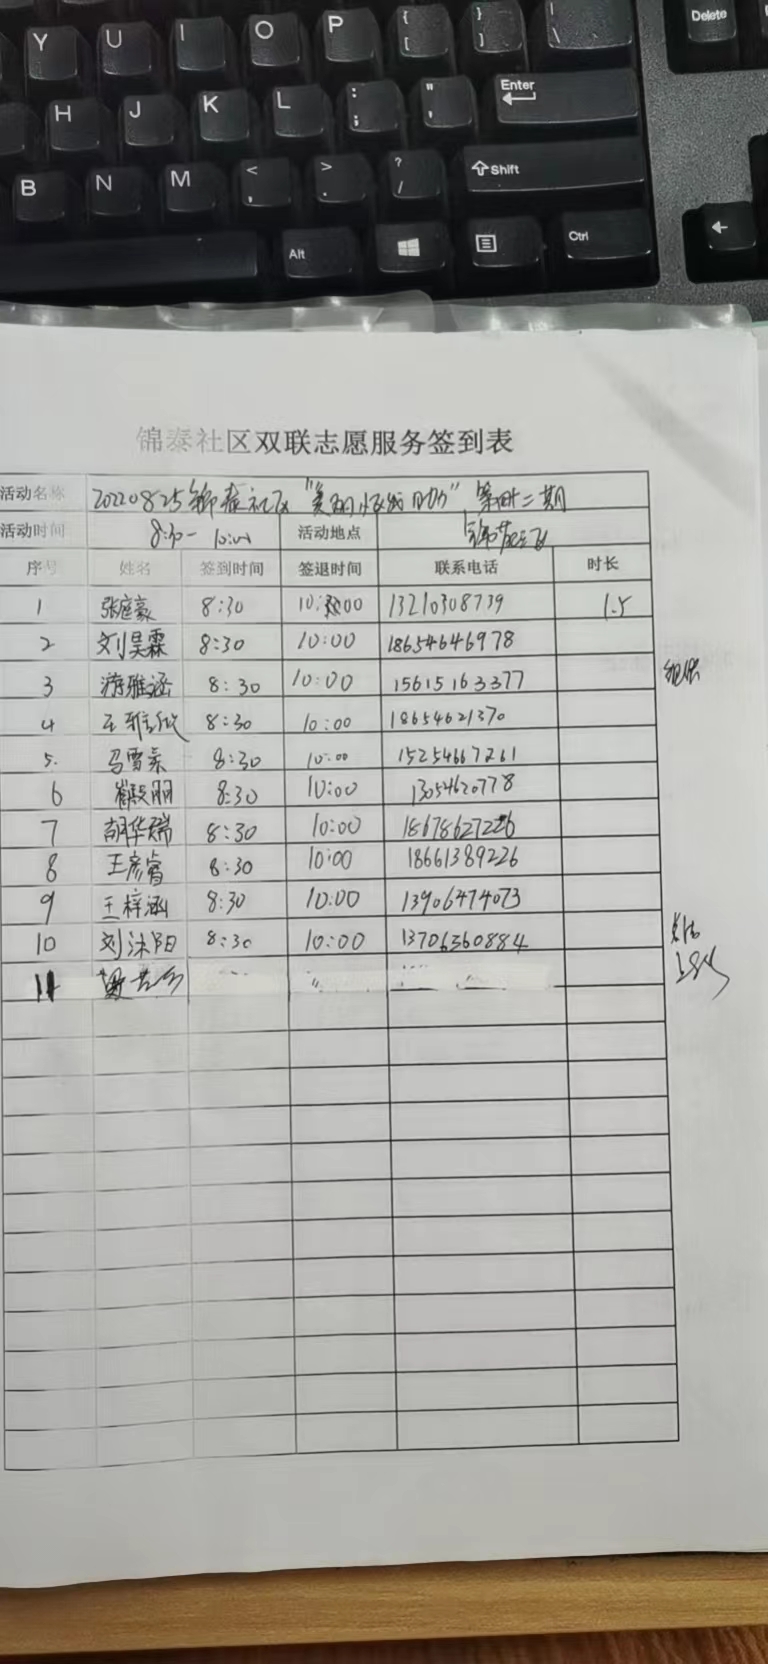 Y U I O P { [ } ] | \ Delete
H J K L : ; " ' Enter
B N M < , > . ? / Shift
Alt Ctrl
锦泰社区双联志愿服务签到表
活动名称 20220825锦泰社区"美丽 " 第 二期
活动时间 8:30- 10:00 活动地点
序号 姓名 签到时间 签退时间 联系电话 时长
1 张庭豪 8:30 10:00 13210308739 1.5
2 刘昊霖 8:30 10:00 18654646978
3 游雅涵 8:30 10:00 15615163377
4 王雅欣 8:30 10:00 18654621370
5. 马雪 8:30 10:00 15254667261
6 8:30 10:00 13054620778
7 胡华瑞 8:30 10:00 18678627226
8 王彦睿 8:30 10:00 18661389226
9 王梓涵 8:30 10:00 13906474073
10 刘沐阳 8:30 10:00 13706360884
11